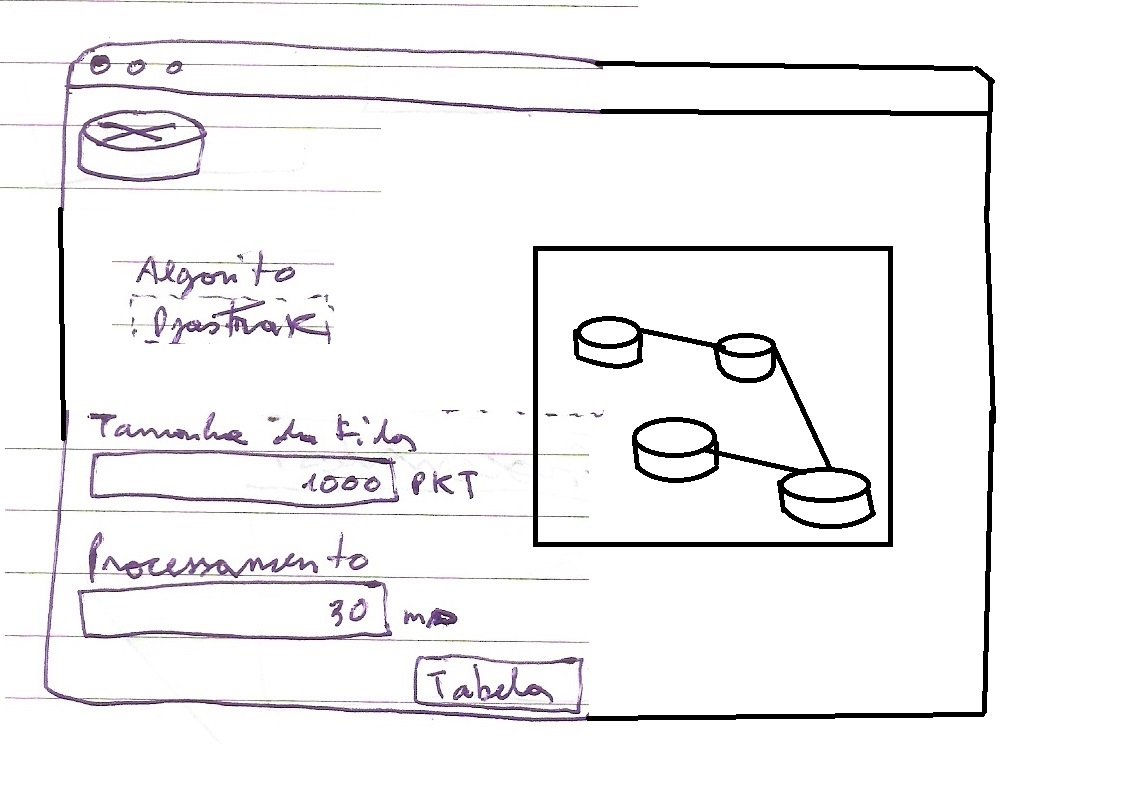 Algorito
Djastrak
Tamanho da Fila
1000 PKT
Processamento
30 ms
Tabela